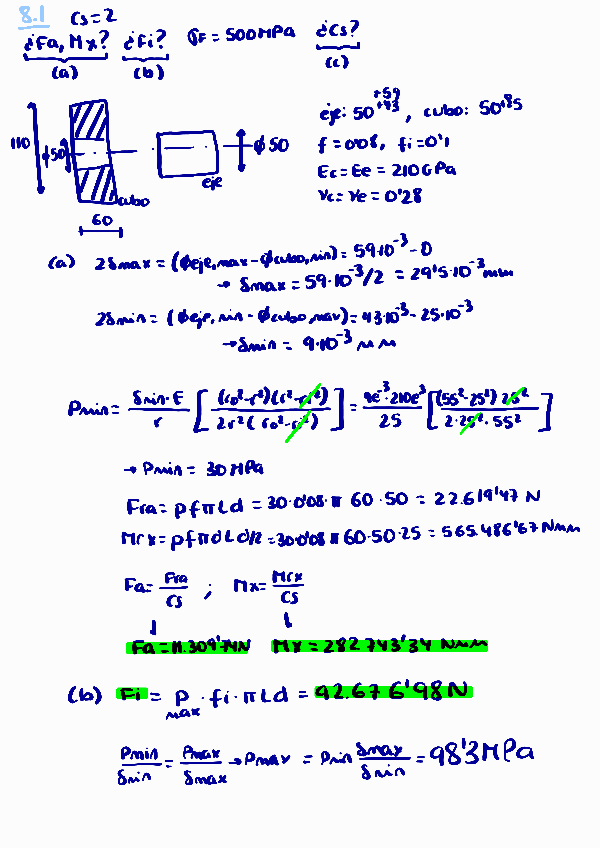 8.1 Cs=2
¿Fa, Mx? ¿Fi? σF = 500MPa ¿Cs?
(a) (b) (c)
eje: 50 +59 +43, cubo: 50 +25
110 ϕ50 ϕ50 f=0'08, fi=0'1
eje Ec=Ee=210GPa
cubo νc=νe=0'28
60
(a) 2δmax=(ϕeje,max-ϕcubo,min)=59·10⁻³-0
→ δmax=59·10⁻³/2 = 29'5·10⁻³mm
2δmin=(ϕeje,min-ϕcubo,max)=43·10⁻³-25·10⁻³
→δmin = 9·10⁻³mm
Pmin= δmin·E/r [(ro²-r²)(r²-ri²)/2r²(ro²-ri²)] = 9e⁻³·210e³/25 [(55²-25²)25²/2·25²·55²]
→ Pmin = 30MPa
Fra=pfπLd = 30·0'08·π 60·50 = 22.619'47 N
Mrx=pfπdLd/2=30·0'08 π 60·50·25 = 565.486'67Nmm
Fa= Fra/CS ; Mx= Mrx/CS
↓ ↓
Fa=11.309'74N Mx=282743'34 Nmm
(b) Fi = Pmax·fi·πLd = 92.676'98N
Pmin/δmin = Pmax/δmax →Pmax = Pmin δmax/δmin = 98'3MPa